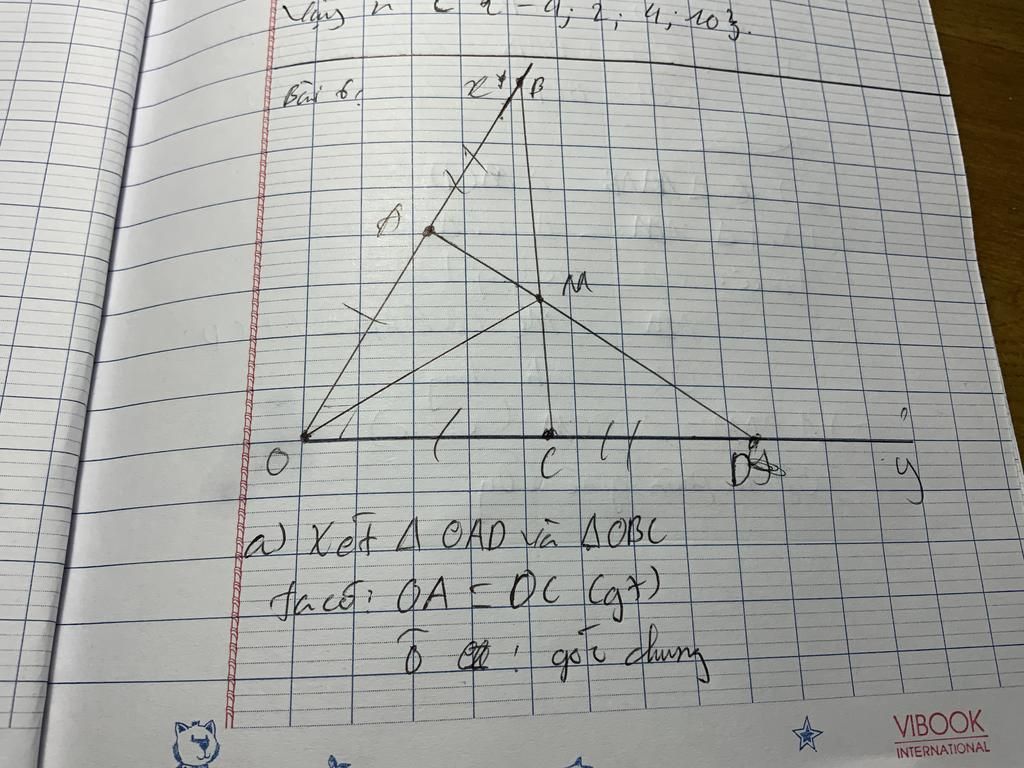 Vậy n
2; 4; 10}.
Bài 6:
x
B
A
M
O
C
D
y
a) Xét Δ OAD và ΔOBC
ta có: OA = OC (gt)
Ô : góc chung
VIBOOK
INTERNATIONAL